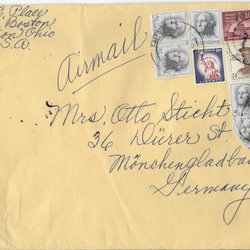 Place
Boston
on Ohio
S.A.
Airmail
Mrs. Otto Sticht
36 Dürer St
Mönchengladba
Germany